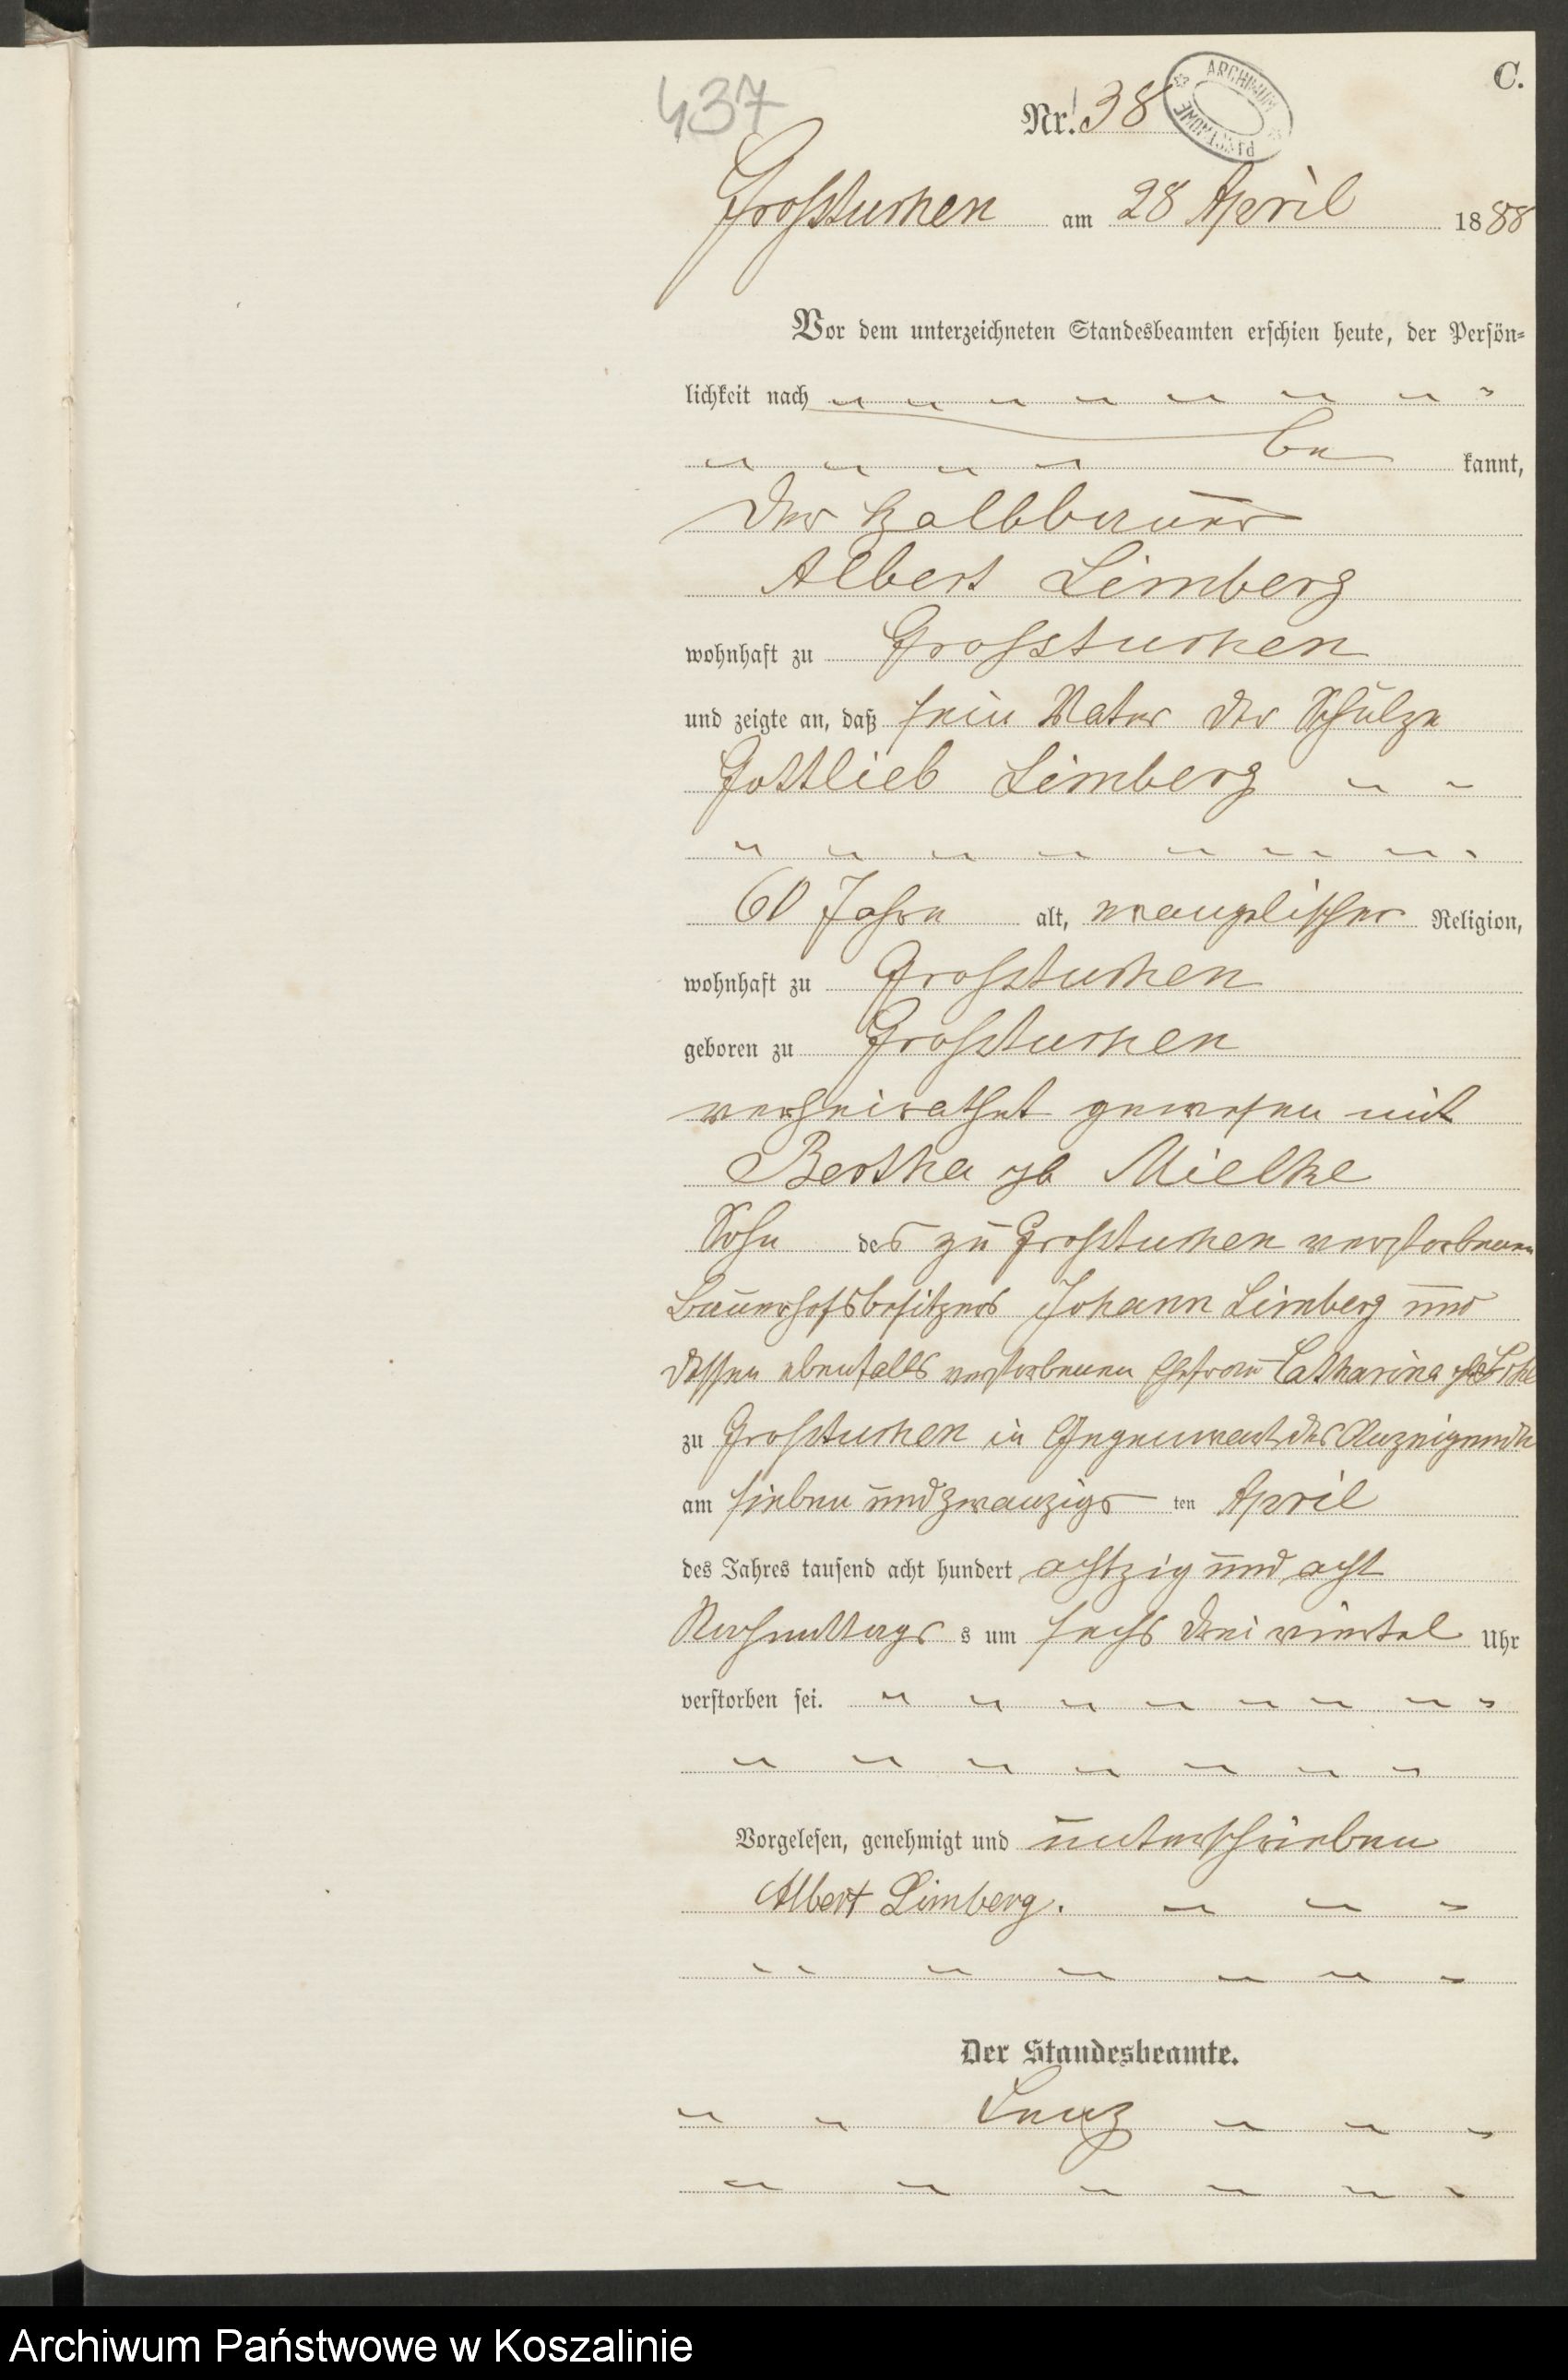 437
C.
Nr. 38
ARCHIWUM PAŃSTWOWE
Grosstuchen am 28 April 1888
Vor dem unterzeichneten Standesbeamten erschien heute, der Persön-
lichkeit nach
be kannt,
der Halbbauer
Albert Limberg
wohnhaft zu Grosstuchen
und zeigte an, daß sein Vater der Schulze
Gottlieb Limberg
60 Jahre alt, evangelischer Religion,
wohnhaft zu Grosstuchen
geboren zu Grosstuchen
verheirathet gewesen mit
Bertha gb Mielke
Sohn des zu Grosstuchen verstorbenen
Bauerhofsbesitzers Johann Limberg und
dessen ebenfalls verstorbenen Ehefrau Catharina
zu Grosstuchen in Gegenwart des Anzeigenden
am sieben und zwanzigs ten April
des Jahres tausend acht hundert achtzig und acht
Nachmittags s um sechs drei viertel Uhr
verstorben sei.
Vorgelesen, genehmigt und unterschrieben
Albert Limberg.
Der Standesbeamte.
Lenz
Archiwum Państwowe w Koszalinie